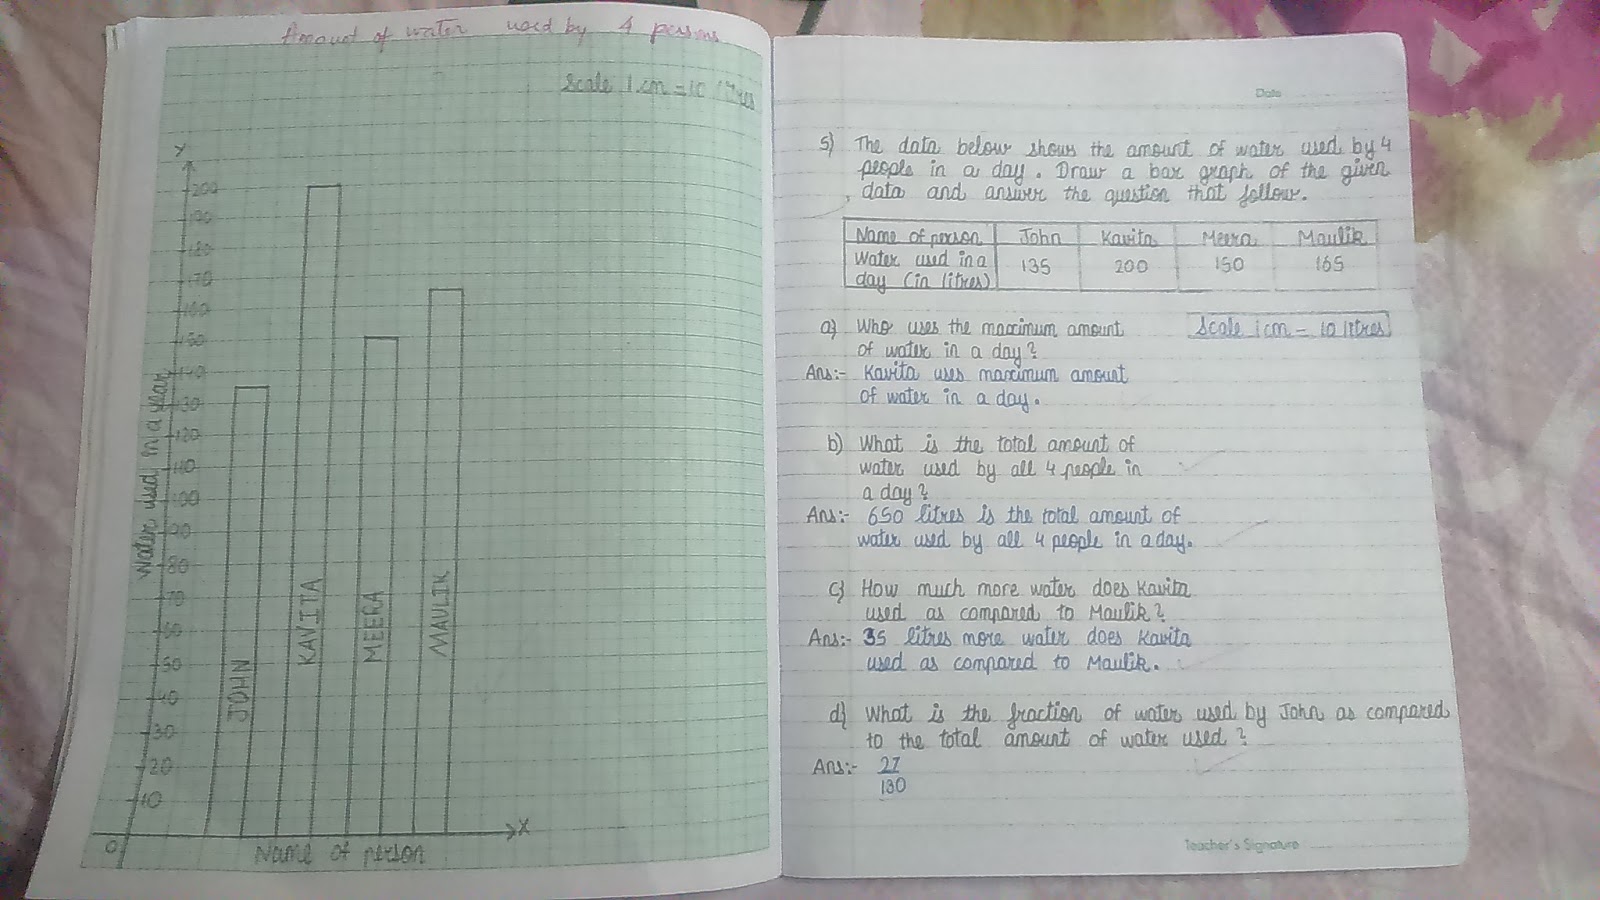 Amount of water used by 4 persons
Scale 1 cm = 10 litres
Y
200
190
180
170
160
150
140
130
120
110
100
90
80
70
60
50
40
30
20
10
0
Water used in a year
JOHN
KAVITA
MEERA
MAULIK
X
Name of person
Date
5) The data below shows the amount of water used by 4
people in a day. Draw a bar graph of the given
data and answer the question that follow.
Name of person John Kavita Meera Maulik
Water used in a
day (in litres) 135 200 150 165
a) Who uses the maximum amount
of water in a day?
Scale 1 cm - 10 litres
Ans:- Kavita uses maximum amount
of water in a day.
b) What is the total amount of
water used by all 4 people in
a day?
Ans:- 650 litres is the total amount of
water used by all 4 people in a day.
c) How much more water does Kavita
used as compared to Maulik?
Ans:- 35 litres more water does Kavita
used as compared to Maulik.
d) What is the fraction of water used by John as compared
to the total amount of water used?
Ans:- 27
130
Teacher's Signature